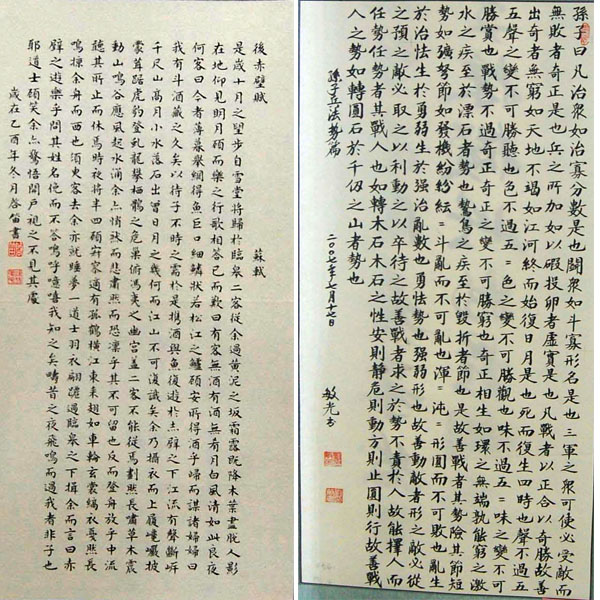 孫子曰凡治衆如治寡分數是也鬬衆如斗寡形名是也三軍之衆可使必受敵而
無敗者奇正是也兵之所加如以碬投卵者虛實是也凡戰者以正合以奇勝故善
出奇者無窮如天地不竭如江河終而始復日月是也死而復生四時也聲不過五
五聲之變不可勝聽也色不過五=色之變不可勝觀也味不過五=味之變不可
勝嘗也戰勢不過奇正奇正之變不可勝窮也奇正相生如環之無端孰能窮之激
水之疾至於漂石者勢也鷙鳥之疾至於毀折者節也是故善戰者其勢險其節短
勢如彍弩節如發機紛紛紜=斗亂而不可亂也渾=沌=形圓而不可敗也亂生
於治怯生於勇弱生於强治亂數也勇怯勢也强弱形也故善動敵者形之敵必從
之預之敵必取之以利動之以卒待之故善戰者求之於勢不責於人故能擇人而
任勢任勢者其戰人也如轉木石木石之性安則静危則動方則止圓則行故善戰
人之勢如轉圓石於千仞之山者勢也
孫子兵法势篇 二〇〇七年七月十七日 敏光书
後赤壁賦 蘇軾
是歲十月之望步自雪堂將歸於臨皋二客從余過黄泥之坂霜露既降木葉盡脱人影
在地仰見明月顧而樂之行歌相答已而歎曰有客無酒有酒無肴月白風清如此良夜
何客曰今者薄暮舉網得魚巨口細鱗狀若松江之鱸顧安所得酒乎歸而謀諸婦婦曰
我有斗酒藏之久矣以待子不時之需於是携酒與魚復遊於赤壁之下江流有聲斷岸
千尺山高月小水落石出曾日月之幾何而江山不可復識矣余乃攝衣而上履巉巖披
蒙茸踞虎豹登虬龍攀栖鶻之危巢俯馮夷之幽宫蓋二客不能從焉劃然長嘯草木震
動山鳴谷應風起水涌余亦悄然而悲肅然而恐凛乎其不可留也反而登舟放乎中流
聽其所止而休焉時夜將半四顧寂寥適有孤鶴橫江東來翅如車輪玄裳縞衣戛然長
鳴掠余舟而西也須臾客去余亦就睡夢一道士羽衣翩躚過臨皋之下揖余而言曰赤
壁之遊樂乎問其姓名俛而不答嗚乎噫嘻我知之矣疇昔之夜飛鳴而過我者非子也
耶道士顧笑余亦驚悟開户視之不見其處
歲在乙酉年冬月啓笛書